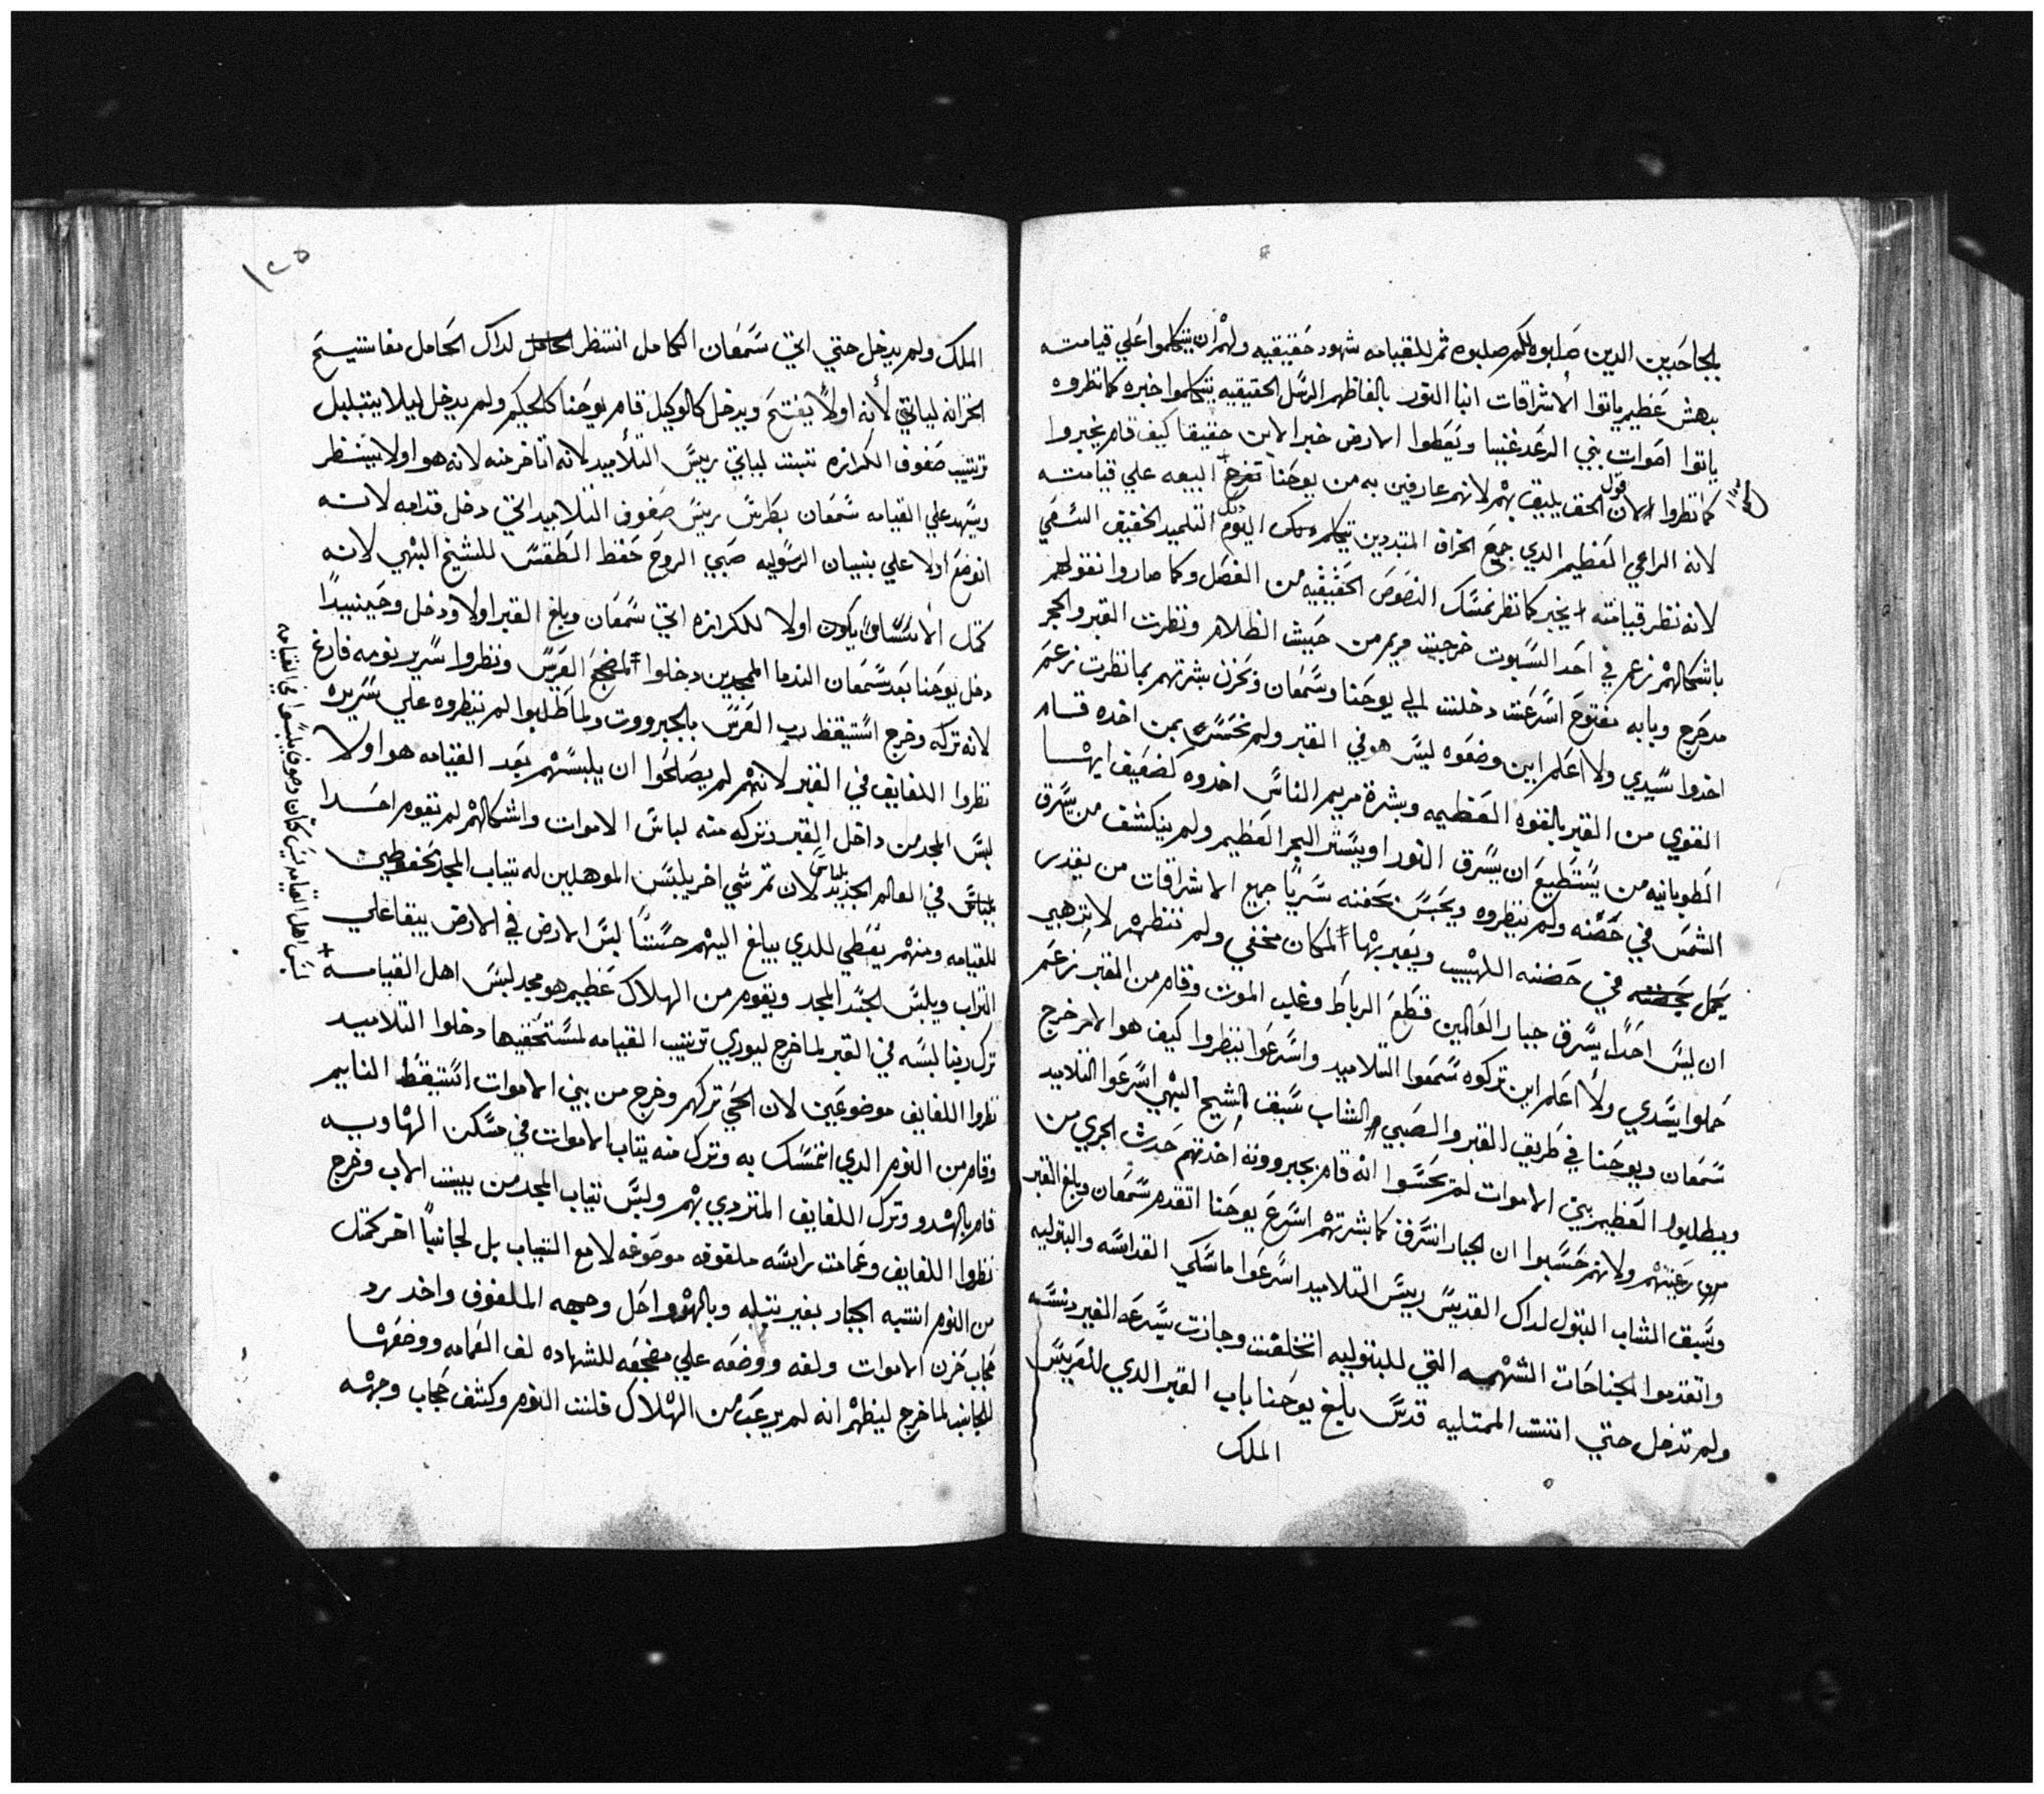 الجاحدين الدين صلبوه لكم صلبوه ثم للقيامه شهود حقيقيه ولهم ان يتكلموا علي قيامته
بدهش عظيم ياتوا الاشراقات ابنا النور بالفاظهم الرسل الحقيقيه يتكلموا خبره كما نظروه
ياتوا اصوات بني الرعد غيبا ويعطوا الارض خبر الابن حقيقا كيف قام يخبروا
كما نظروا لان قول الحق يليق بهم لانهم عارفين به من يوحنا تفرح البيعه علي قيامته
لانه الراعي العظيم الدي جمع الخراف المتبددين يتكلم اليوم التلميد الحقيقي
لانه نظر قيامته يخبر كما نظر نمسك النصوص الحقيقيه من الفصل وكما صاروا نقولهم
باشكالهم زعم في احد السبوت خرجت مريم من حبيش الظلام ونظرت القبر والحجر
مدحرج وبابه مفتوح اسرعت دخلت الي يوحنا وسمعان وبحزن بشرتهم بما نظرت زعم
اخدوا سيدي ولا اعلم اين وضعوه ليس هو في القبر ولم نحس بمن اخده قام
القوي من القبر بالقوه العظيمه وبشرة مريم الناس اخدوه كضعيف ايها
الطوبانيه من يستطيع ان يسرق النور او يستر البحر العظيم ولم ينكشف من يسرق
الشمس في حضنه ولم ينظروه ويحبس بحفنه سريا جميع الاشراقات من يقدر
يحمل في حضنه اللهيب ويعبر بها المكان مخفي ولم تنظهر لا تزهي
ان ليس احدا يسرق جبار العالمين قطع الرباط وغلب الموت وقام من القبر زعم
حملوا سيدي ولا اعلم اين تركوه سمعوا التلاميد واسرعوا لينظروا كيف هو الامر خرج
سمعان ويوحنا في طريق القبر والصبي الشاب سبق الشيخ البهي اسرعوا التلاميد
ويطلبوا العظيم بين الاموات لم يحسوا انه قام بجبروته اخدتهم حدث الجري من
رغبتهم ولانهم حسبوا ان الجبار انسرق كما بشرتهم اسرع يوحنا اتقدم سمعان وبلغ القبر
وسبق الشاب البتول لداك القديس رييس التلاميد اسرعوا ماسكي القداسه والبتوليه
واتقدموا الجناحات الشهيه التي للبتوليه انخلفت وجازت بسرعه القبر
ولم تدخل حتي اتت الممتليه قدس بلغ يوحنا باب القبر الدي لعريس
الملك
١٢٥
الملك ولم يدخل حتي اتي سمعان الكامل انتظر لداك الحامل مفاتيح
الخزانه لياتي لانه اولا يفتح ويدخل كالوكيل قام يوحنا كالحكيم ولم يدخل ليلا يتبلبل
ترتيب صفوف الكرازه تثبت لياتي رييس التلاميد لانه اتاخر منه لانه هو اولا ينتظر
ويشهد علي القيامه سمعان بطرس رييس صفوف التلاميد اتي دخل قدامه لانه
اتوضع اولا علي بنيان الرسوليه صبي الروح حفظ الطقس للشيخ البهي لانه
كمثل الاساس يكون اولا للكرازه اتي سمعان وبلغ القبر اولا ودخل وحينيدا
دخل يوحنا بعد سمعان الندما الممجدين دخلوا لمضجع العريس ونظروا سرير نومه فارغ
لانه تركه وخرج استيقظ رب العرس بالجبرووت ولما طلبوا لم ينظروه علي سريره
نظروا اللفايف في القبر لانهم لم يصلحوا ان يلبسهم بعد القيامه هو اولا
لبس المجد من داخل القبر وتركه منه لباس الاموات واشكالهم لم يقوم احدا
بلباس في العالم الجديد لان تم شي اخر يلبس الموهلين له تياب المجد محفوظين
للقيامه ومنهم يعطي للدي يبلغ اليهم حسنا لبس الارض في الارض يبقا علي
التراب ويلبس الجسد المجد ويقوم من الهلاك عظيم هو مجد لبس اهل القيامه +
ترك ربنا لبسه في القبر لما خرج ليوري ترتيب القيامه لمستحقيها دخلوا التلاميد
نظروا اللفايف موضوعين لان الحي تركهم وخرج من بين الاموات استيقظ النايم
وقام من النوم الدي اتمسك به وترك منه تياب الاموات في مسكن الهاويه
قام بالهدو وترك اللفايف المتردي بهم ولبس تياب المجد من بيت الاب وخرج
نظروا اللفايف وعمامت راسه ملفوفه موضوعه لا مع التياب بل لجانبا اخر كمثل
من النوم انتبه الجبار بغير بلبله وبالهدو احل وجهه الملفوف واخد برد
حجاب حزن الاموات ولفه ووضعه علي مضجعه للشهاده لف العمامه ووضعها
للجانب لما خرج ليظهر انه لم يرعب من الهلاك فلت النوم وكشف حجاب وجهه
لبس اهل القيامه ليس كتان وصوف يلبسوا في القيامه